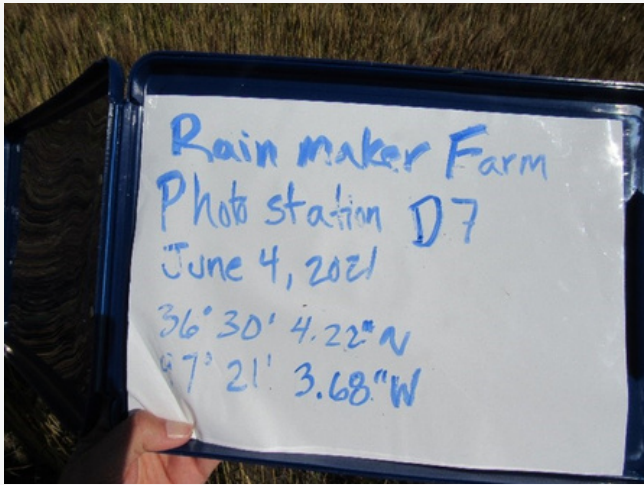 Rain maker Farm
Photo station D7
June 4, 2021
36° 30' 4.22" N
97° 21' 3.68" W